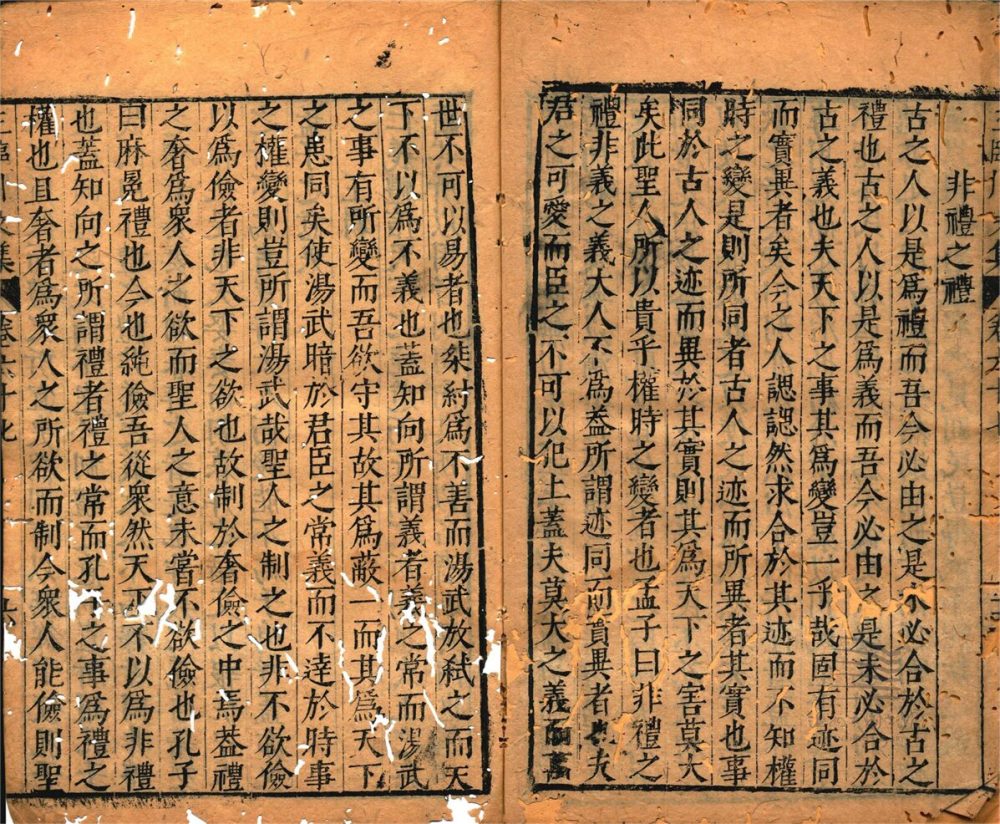 非禮之禮
古之人以是爲禮而吾今必由之是未必合於古之
禮也古之人以是爲義而吾今必由之是未必合於
古之義也夫天下之事其爲變豈一乎哉固有迹同
而實異者矣今之人諰諰然求合於其迹而不知權
時之變是則所同者古人之迹而所異者其實也事
同於古人之迹而異於其實則其爲天下之害莫大
矣此聖人所以貴乎權時之變者也孟子曰非禮之
禮非義之義大人不爲蓋所謂迹同而實異者也夫
君之可愛而臣之不可以犯上蓋夫莫大之義而萬
世不可以易者也桀紂爲不善而湯武放弑之而天
下不以爲不義也蓋知向所謂義者義之常而湯武
之事有所變而吾欲守其故其爲蔽一而其爲天下
之患同矣使湯武暗於君臣之常義而不達於時事
之權變則豈所謂湯武哉聖人之制之也非不欲儉
以爲儉者非天下之欲也故制於奢儉之中焉蓋禮
之奢爲衆人之欲而聖人之意未嘗不欲儉也孔子
曰麻冕禮也今也純儉吾從衆然天下不以爲非禮
也蓋知向之所謂禮者禮之常而孔子之事爲禮之
權也且奢者爲衆人之所欲而制今衆人能儉則聖
王臨川文集 卷六十七